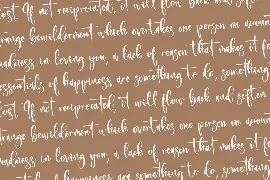 lost. If not reciprocated, it will flow back and soften
strange bewilderment which overtakes one person on account
madness in loving you, a lack of reason that makes it f
essentials of happiness are something to do, something
lost. If not reciprocated, it will flow back and soften
strange bewilderment which overtakes one person on account
madness in loving you, a lack of reason that makes it fe
essentials of happiness are something to do, something